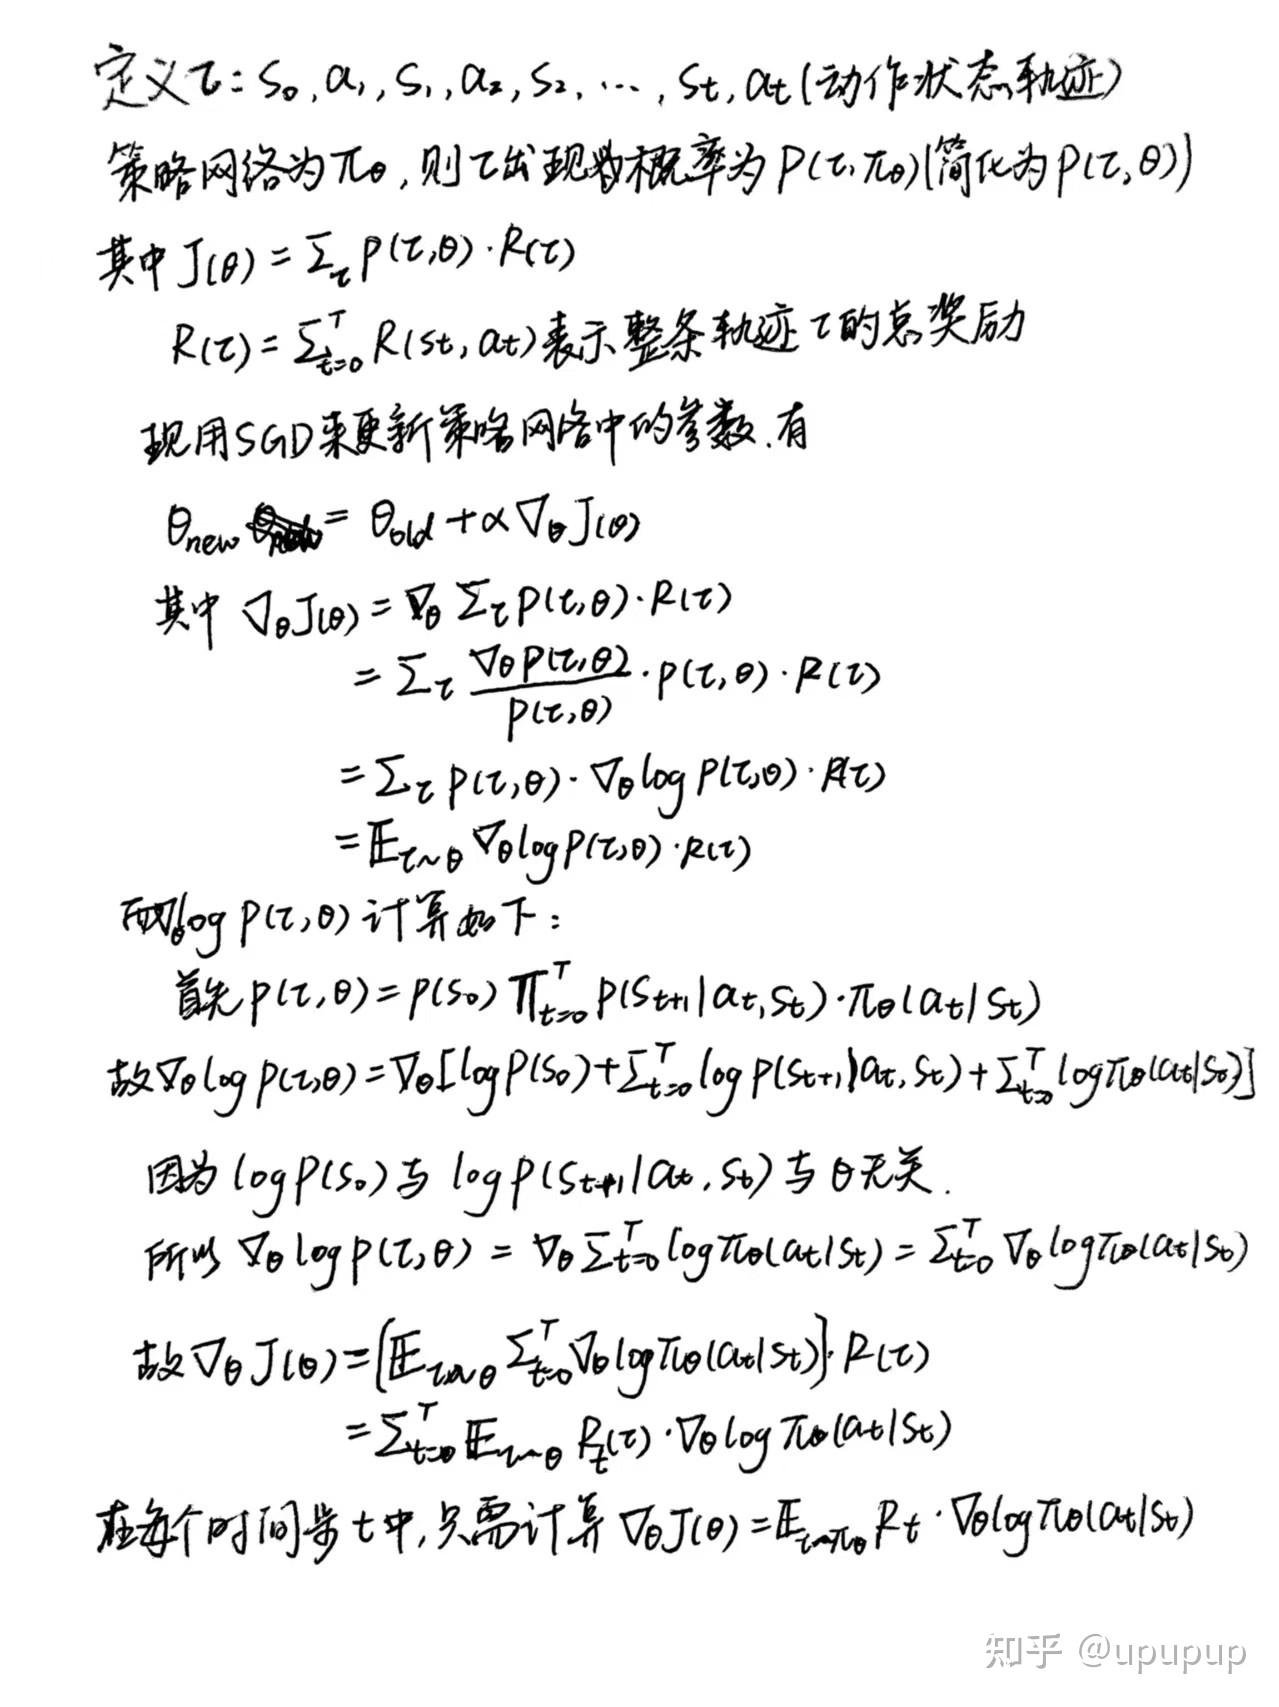 定义τ: S₀, a₁, S₁, a₂, S₂, …, Sₜ, aₜ (动作状态轨迹)
策略网络为πθ, 则τ出现的概率为P(τ,πθ)(简化为P(τ,θ))
其中J(θ) = Σ_τ P(τ,θ)·R(τ)
R(τ) = Σ_{t=0}^T R(Sₜ, aₜ) 表示整条轨迹τ的总奖励
现用SGD来更新策略网络中的参数, 有
θ_new = θ_old + α∇θJ(θ)
其中 ∇θJ(θ) = ∇θ Σ_τ P(τ,θ)·R(τ)
= Σ_τ \frac{∇θP(τ,θ)}{P(τ,θ)}·P(τ,θ)·R(τ)
= Σ_τ P(τ,θ)·∇θlogP(τ,θ)·R(τ)
= 𝔼_{τ~θ} ∇θlogP(τ,θ)·R(τ)
而∇θlogP(τ,θ)计算如下:
首先P(τ,θ) = P(S₀) ∏_{t=0}^T P(S_{t+1}|aₜ,Sₜ)·πθ(aₜ|Sₜ)
故∇θlogP(τ,θ) = ∇θ[logP(S₀) + Σ_{t=0}^T logP(S_{t+1}|aₜ,Sₜ) + Σ_{t=0}^T logπθ(aₜ|Sₜ)]
因为logP(S₀)与logP(S_{t+1}|aₜ,Sₜ)与θ无关.
所以 ∇θlogP(τ,θ) = ∇θ Σ_{t=0}^T logπθ(aₜ|Sₜ) = Σ_{t=0}^T ∇θlogπθ(aₜ|Sₜ)
故∇θJ(θ) = [𝔼_{τ~θ} Σ_{t=0}^T ∇θlogπθ(aₜ|Sₜ)]·R(τ)
= Σ_{t=0}^T 𝔼_{τ~θ} Rₜ(τ)·∇θlogπθ(aₜ|Sₜ)
在每个时间步t中, 只需计算 ∇θJ(θ) = 𝔼_{τ~πθ} Rₜ·∇θlogπθ(aₜ|Sₜ)
知乎 @upupup